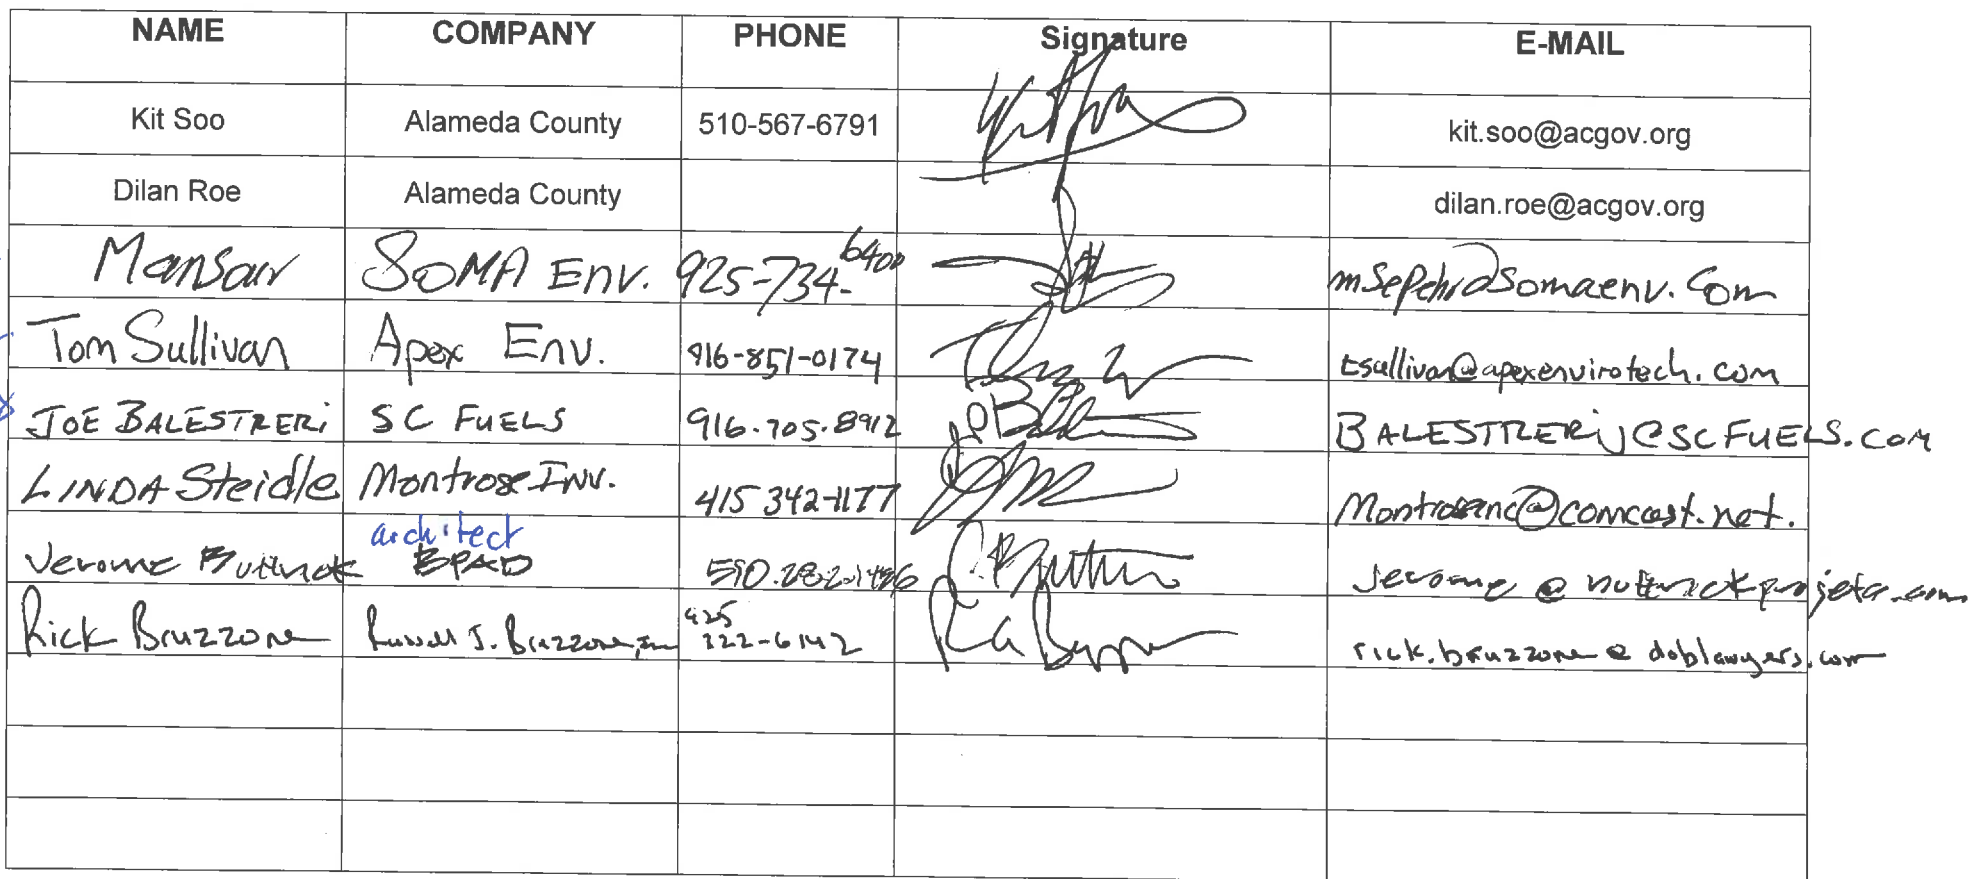 NAME COMPANY PHONE Signature E-MAIL
Kit Soo Alameda County 510-567-6791 kit.soo@acgov.org
Dilan Roe Alameda County dilan.roe@acgov.org
Mansour SOMA Env. 925-734-6400 msepehr@somaenv.com
Tom Sullivan Apex Env. 916-851-0174 tsullivan@apexenvirotech.com
JOE BALESTRERi SC FUELS 916.705.8912 BALESTRERiJ@SCFUELS.COM
LINDA Steidle Montrose INV. 415 342-1177
architect
Jerome Buttrick BPAD
Rick Bruzzone Russell J. Bruzzone, Inc rick.bruzzone@doblawyers.com